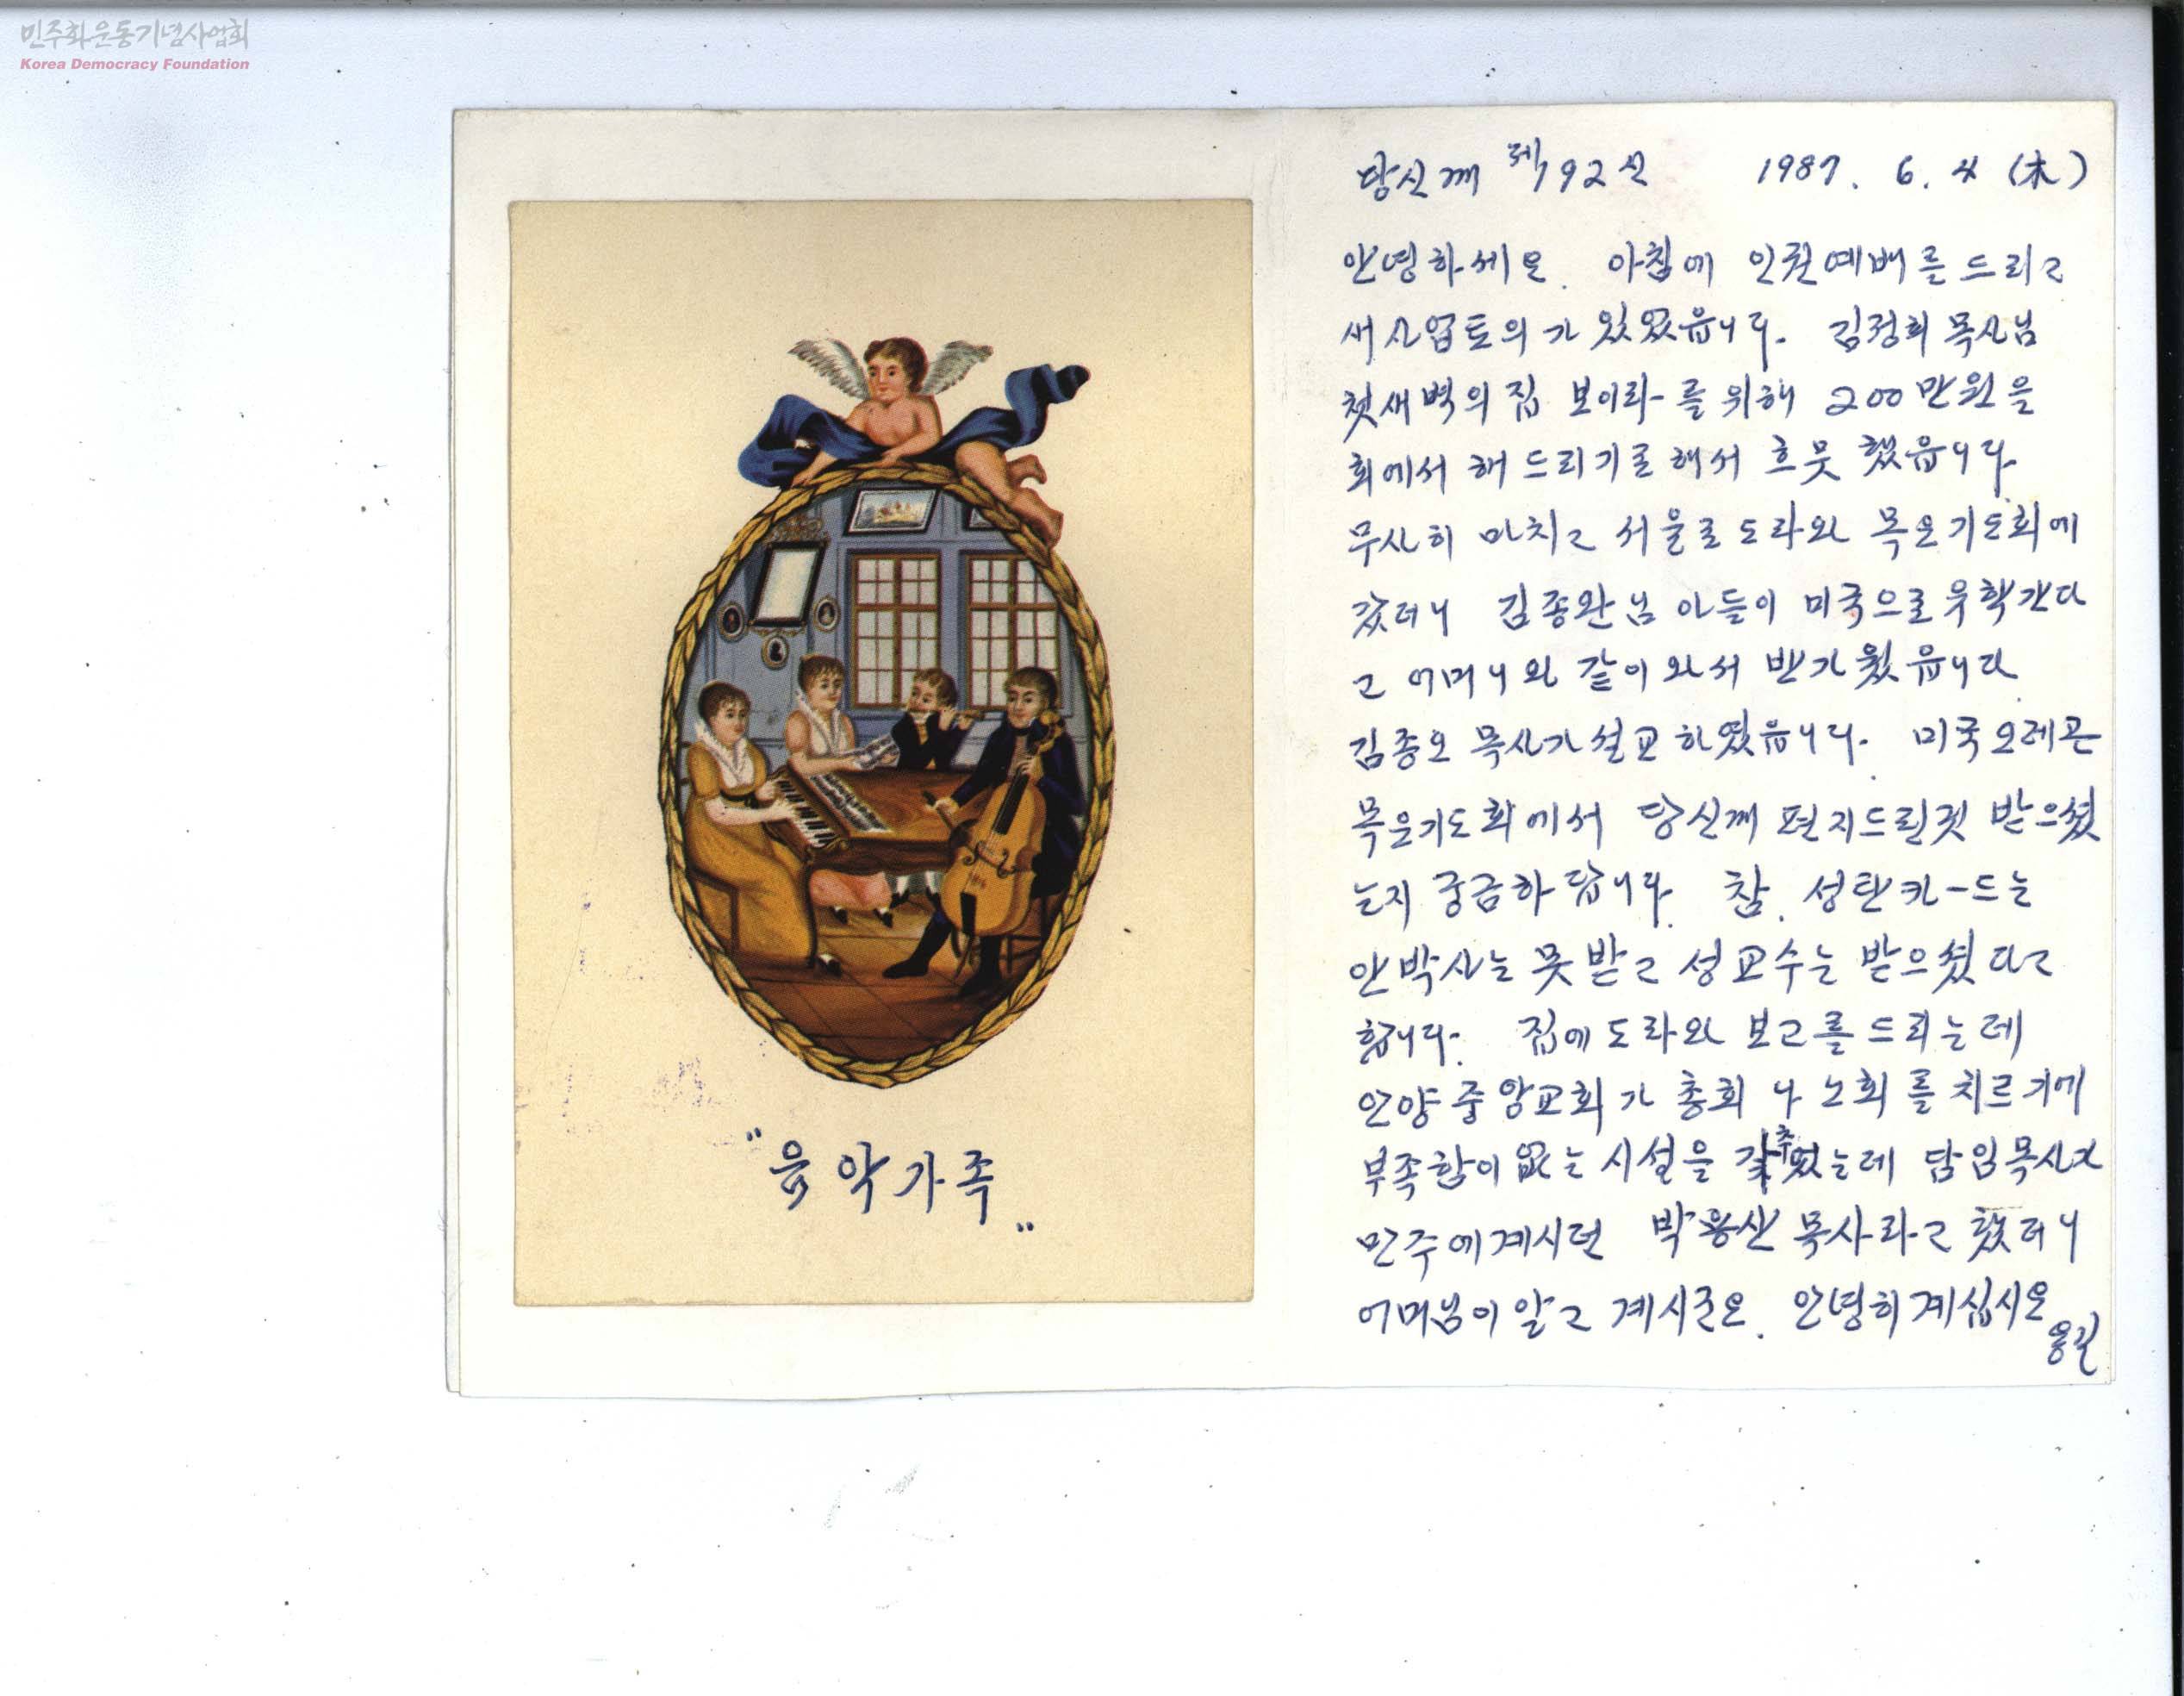 민주화운동기념사업회
Korea Democracy Foundation
당신께 제192신 1987. 6. 4 (木)
안녕하세요. 아침에 인권예배를 드리고
새사업토의가 있었읍니다. 김정희 목사님
첫새벽의 집 보이라-를 위해 200만원을
회에서 해 드리기로 해서 흐뭇 했읍니다.
무사히 마치고 서울로 도라와 목요기도회에
갔더니 김종완님 아들이 미국으로 유학간다
고 어머니와 같이 와서 반가웠읍니다
김종오 목사가 설교하였읍니다. 미국오레곤
목요기도회에서 당신께 편지드린것 받으셨
는지 궁금하답니다. 참. 성탄카-드는
안박사는 못받고 성교수는 받으셨다고
합니다. 집에 도라와 보고를 드리는데
안양중앙교회가 총회나 노회를 치르기에
부족함이 없는 시설을 갖추었는데 담임목사가
만주에계시던 박용산 목사라고 했더니
어머님이 알고 계시군요. 안녕히 계십시오
용길
"음악가족"